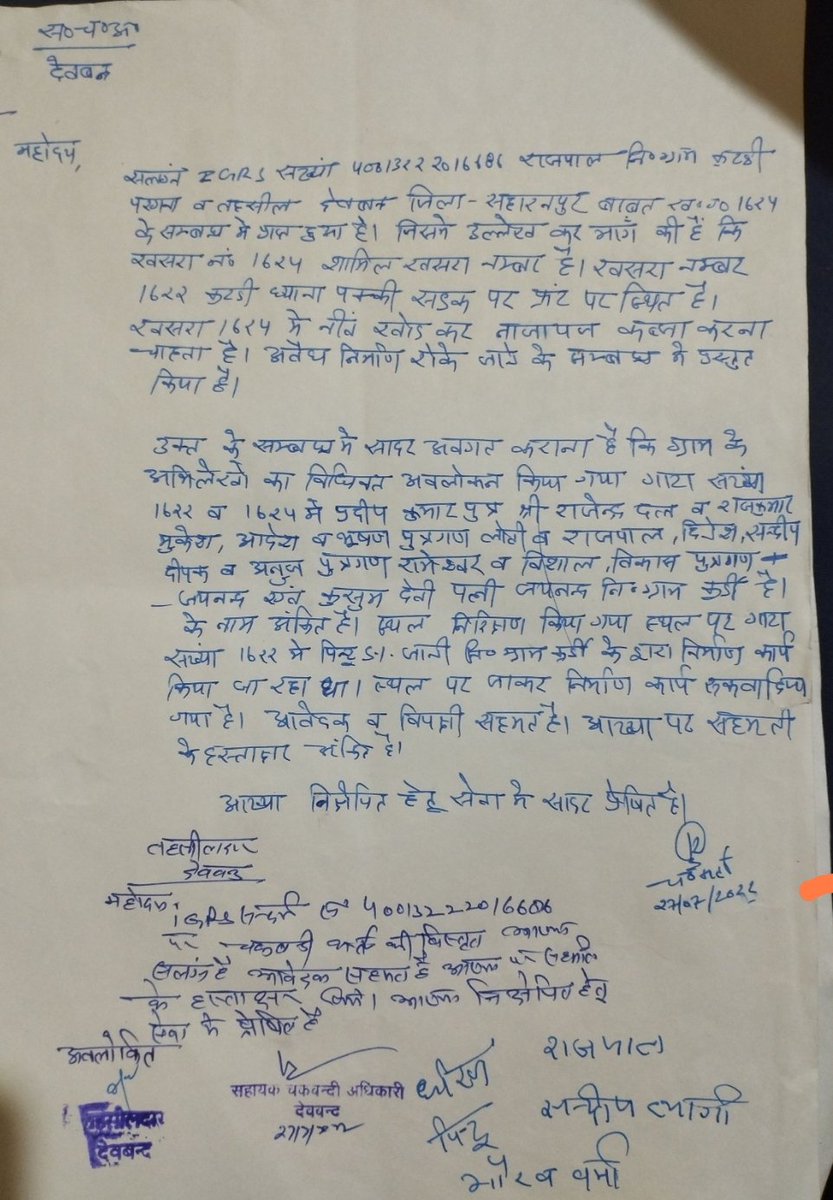 स०च०अ०
देवबन्द
महोदय,
संलग्न IGRS संख्या 40013222016686 राजपाल नि०ग्राम कुरडी
परगना व तहसील देवबन्द जिला - सहारनपुर बाबत ख०न० 1624
के सम्बन्ध मे प्राप्त हुया है। जिसमे उल्लेख कर माँग की है कि
खसरा नं० 1624 शामिल खसरा नम्बर है। खसरा नम्बर
1622 कुरडी ध्याना पक्की सडक पर फ्रंट पर स्थित है।
खसरा 1624 मे नींव खोद कर नाजायज कब्जा करना
चाहता है। अवैध निर्माण रोके जाने के सम्बन्ध मे प्रस्तुत
किया है।
उक्त के सम्बन्ध मे सादर अवगत कराना है कि ग्राम के
अभिलेखो का विधिवत अवलोकन किया गया गाटा संख्या
1622 व 1624 मे प्रदीप कुमार पुत्र श्री राजेन्द्र दत्त व राजकुमार
मुकेश, आदेश व भूषण पुत्रगण व राजपाल, दिनेश, सन्दीप
दीपक व अनुज पुत्रगण रामेश्वर व विशाल, विकास पुत्रगण
जयनन्द एवं कुसुम देवी पत्नी जयनन्द नि०ग्राम कुर्डी है।
के नाम अंकित है। स्थल निरिक्षण किया गया स्थल पर गाटा
संख्या 1622 मे पिन्टू नि० ग्राम कुर्डी के द्वारा निर्माण कार्य
किया जा रहा था। स्थल पर जाकर निर्माण कार्य रुकवा दिया
गया है। आवेदक व विपक्षी सहमत है। आख्या पर सहमती
के हस्ताक्षर अंकित है।
आख्या निक्षेपित हेतू सेवा मे सादर प्रेषित है।
27/07/2022
तहसीलदार
देवबन्द
महोदय,
IGRS सन्दर्भ सं 40013222016686
पर चकबन्दी कर्ता की विस्तृत आख्या
संलग्न है आवेदक सहमत है आख्या पर सहमति
के हस्ताक्षर किये। आख्या निक्षेपित हेतु
सेवा मे प्रेषित है
अवलोकित
तहसीलदार
देवबन्द
सहायक चकबन्दी अधिकारी
देवबन्द
राजपाल
सन्दीप त्यागी
पिन्टू
गौरव वर्मा